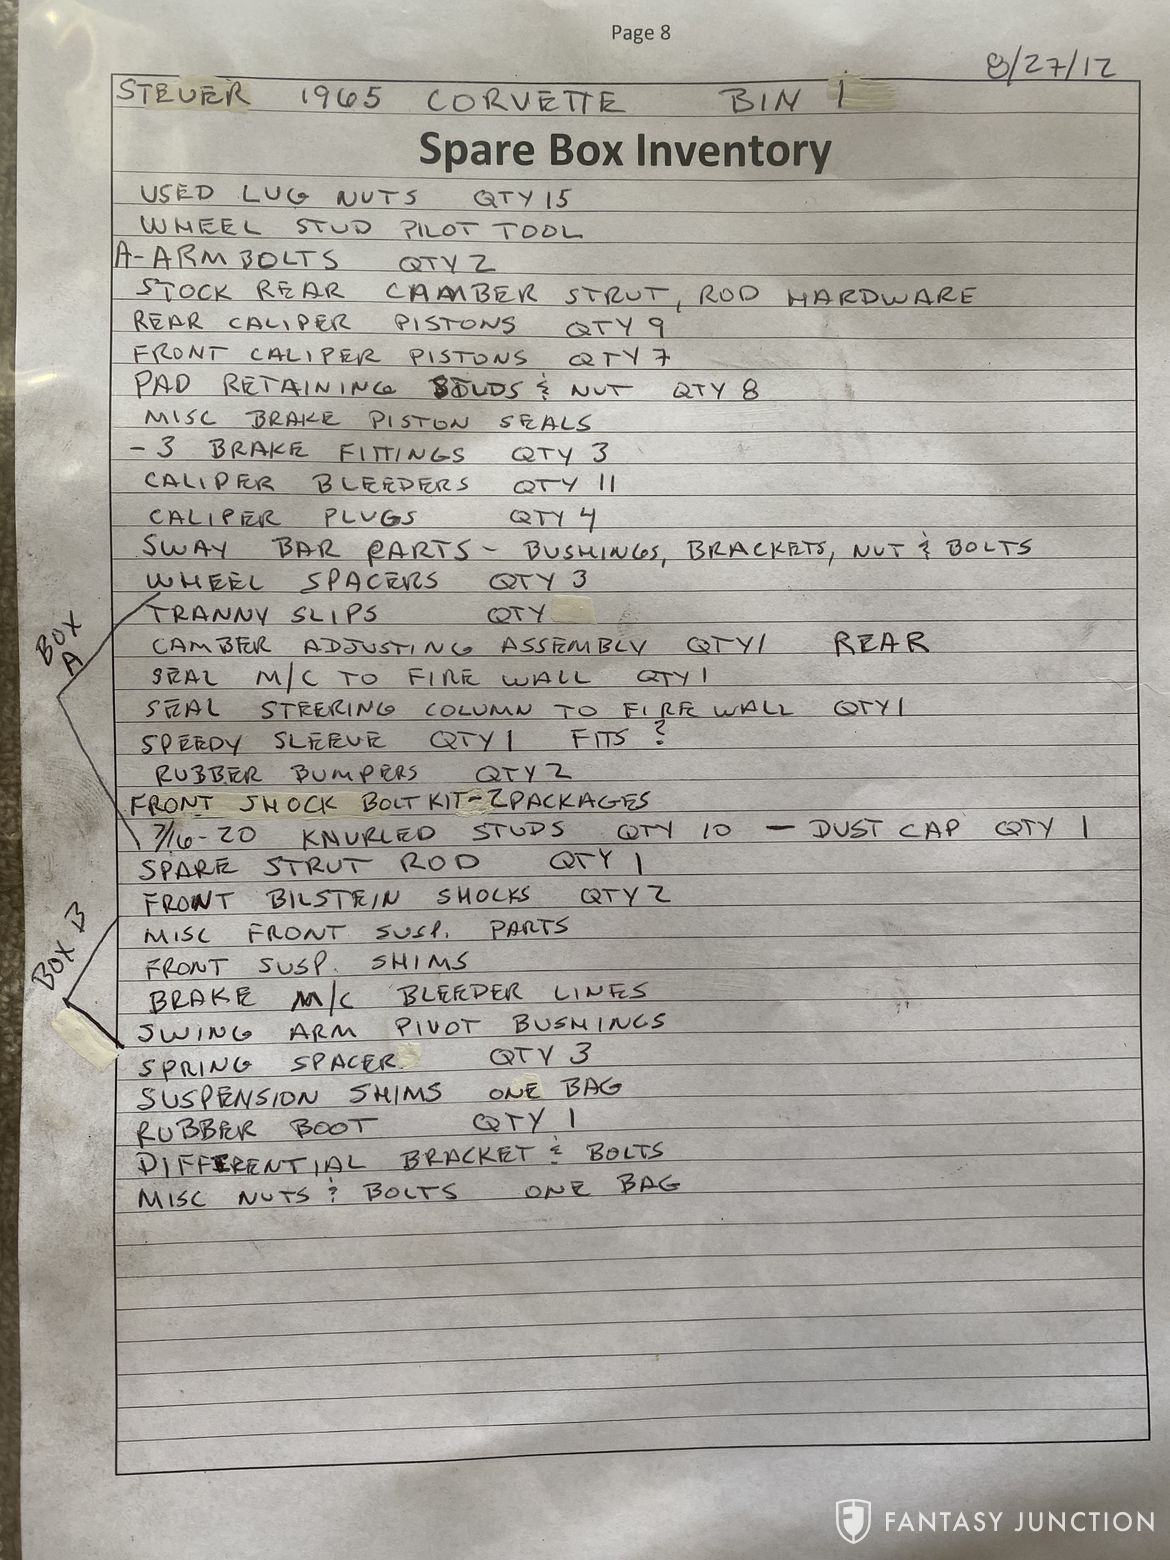 Page 8
8/27/12
STEUER 1965 CORVETTE BIN 1
Spare Box Inventory
USED LUG NUTS QTY 15
WHEEL STUD PILOT TOOL
A-ARM BOLTS QTY 2
STOCK REAR CAMBER STRUT, ROD HARDWARE
REAR CALIPER PISTONS QTY 9
FRONT CALIPER PISTONS QTY 7
PAD RETAINING STUDS & NUT QTY 8
MISC BRAKE PISTON SEALS
-3 BRAKE FITTINGS QTY 3
CALIPER BLEEDERS QTY 11
CALIPER PLUGS QTY 4
SWAY BAR PARTS - BUSHINGS, BRACKETS, NUT & BOLTS
WHEEL SPACERS QTY 3
TRANNY SLIPS QTY
BOX A
CAMBER ADJUSTING ASSEMBLY QTY 1 REAR
SEAL M/C TO FIRE WALL QTY 1
SEAL STEERING COLUMN TO FIRE WALL QTY 1
SPEEDY SLEEVE QTY 1 FITS ?
RUBBER BUMPERS QTY 2
FRONT SHOCK BOLT KIT - 2 PACKAGES
7/16-20 KNURLED STUDS QTY 10 - DUST CAP QTY 1
SPARE STRUT ROD QTY 1
FRONT BILSTEIN SHOCKS QTY 2
MISC FRONT SUSP. PARTS
BOX B
FRONT SUSP. SHIMS
BRAKE M/C BLEEDER LINES
SWING ARM PIVOT BUSHINGS
SPRING SPACER QTY 3
SUSPENSION SHIMS ONE BAG
RUBBER BOOT QTY 1
DIFFERENTIAL BRACKET & BOLTS
MISC NUTS & BOLTS ONE BAG
FANTASY JUNCTION